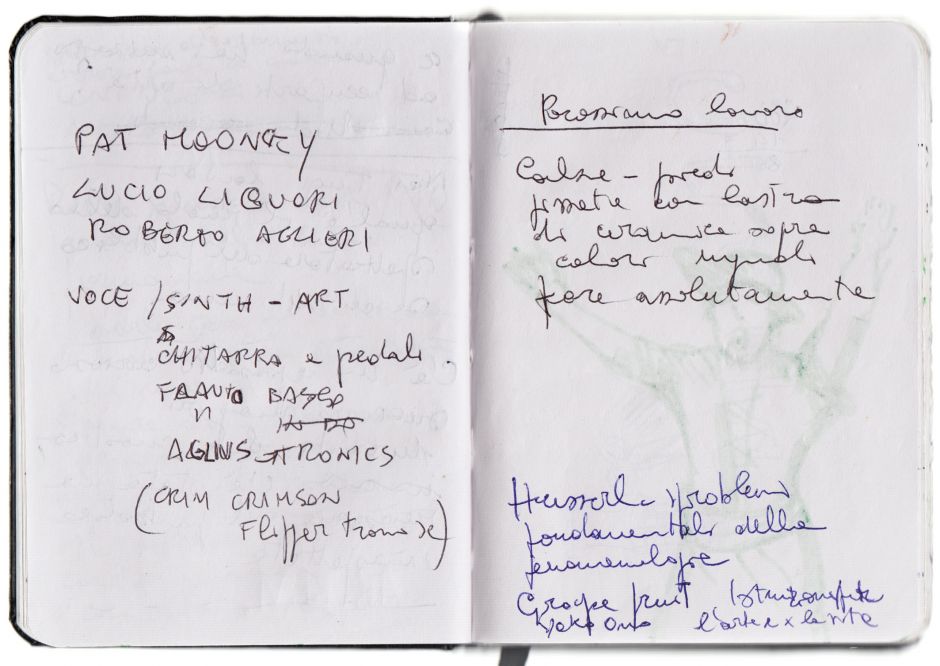 PAT MOONEY
LUCIO LIGUORI
ROBERTO AGLIERI
VOCE / SINTH - ART
CHITARRA e pedali
FLAUTO BASSO
AGLINS-TRONICS
(CRIM CRIMSON
Flipper tronose)
Prossimo lavoro
Calze - piedi
pissate con lastra
di ceramica sopra
colori
fare assolutamente
Husserl - problemi
fondamentali della
fenomenologia
Grape fruit Istruzioni per
Yoko Ono l'arte e x la vita